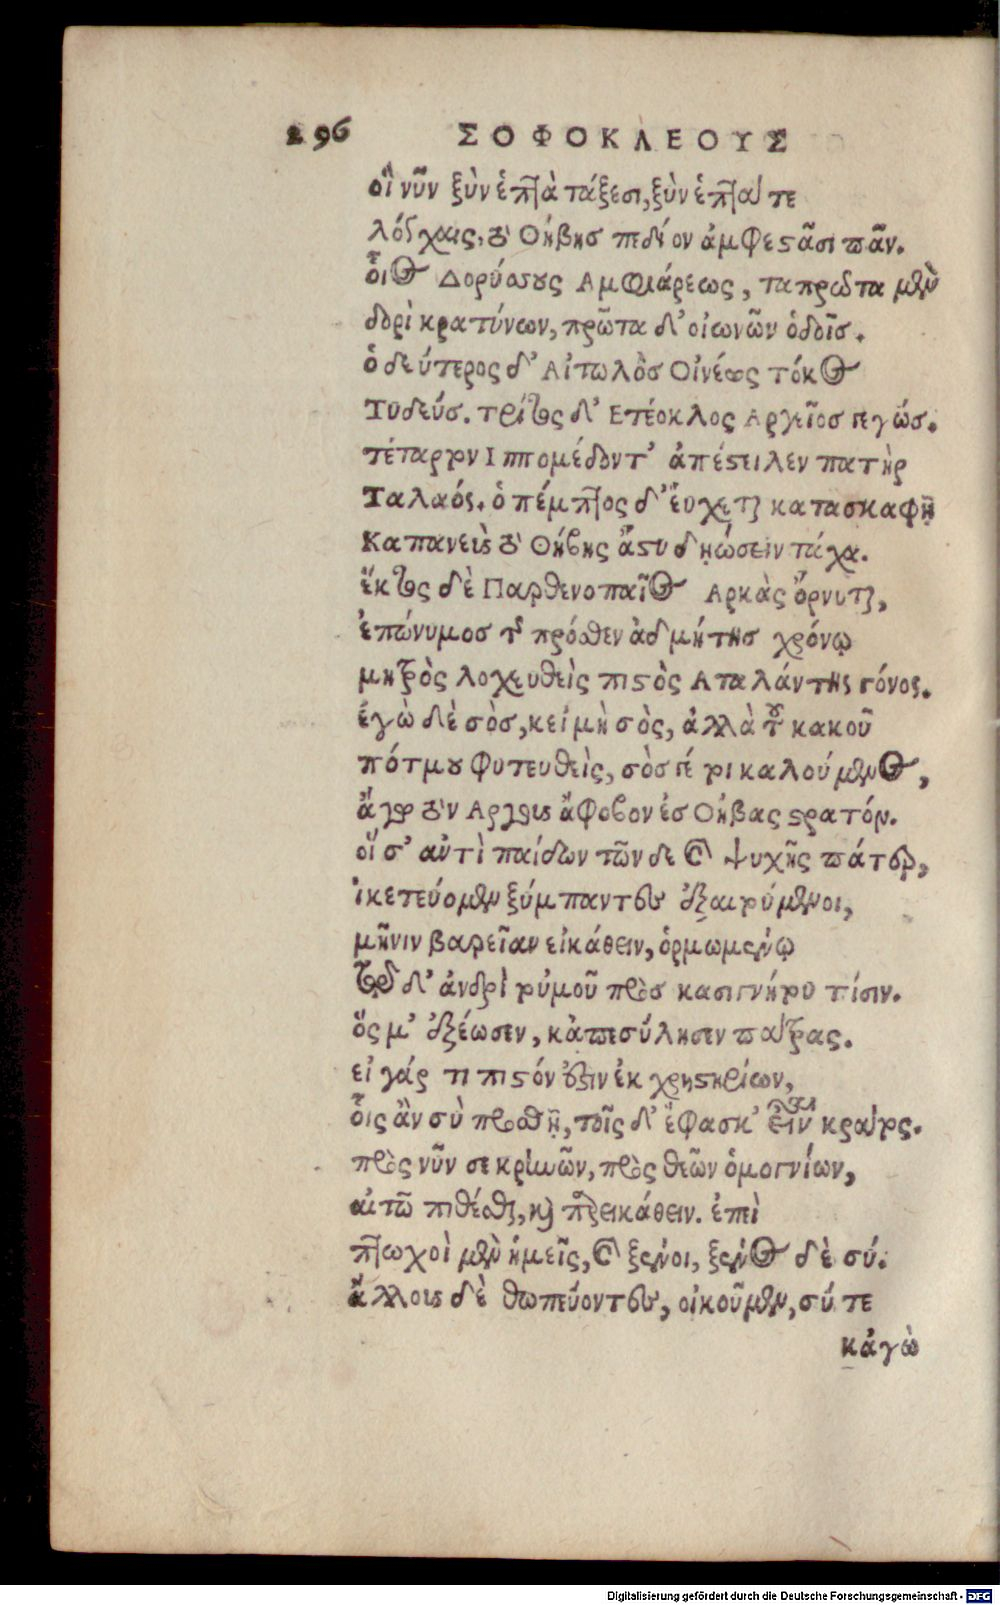 296 ΣΟΦΟΚΛΕΟΥΣ
οἳ νῦν ξὺν ἑπτὰ τάξεσι, ξὺν ἑπτά τε
λόγχαις, τὸ Θήβης πεδίον ἀμφεστᾶσι πᾶν.
οἷος Δορύσσους Αμφιάρεως, τὰ πρῶτα μὲν
δορὶ κρατύνων, πρῶτα δ’ οἰωνῶν ὁδοῖς.
ὁ δεύτερος δ’ Αἰτωλὸς Οἰνέως τόκος
Τυδεύς. τρίτος δ’ Ετέοκλος Αργεῖος γεγώς.
τέταρτον Ιππομέδοντ’ ἀπέστειλεν πατὴρ
Ταλαός. ὁ πέμπτος δ’ εὔχεται κατασκαφῇ
Καπανεὺς τὸ Θήβης ἄστυ δῃώσειν τάχα.
ἕκτος δὲ Παρθενοπαῖος Αρκὰς ὄρνυται,
ἐπώνυμος τῆς πρόσθεν ἀδμήτης χρόνῳ
μητρὸς λοχευθεὶς πιστὸς Αταλάντης γόνος.
ἐγὼ δὲ σὸς, κεἰ μὴ σὸς, ἀλλὰ τοῦ κακοῦ
πότμου φυτευθεὶς, σός γέ τοι καλούμενος,
ἄγω τὸν Αργους ἄφοβον ἐς Θήβας στρατόν.
οἵ σ’ αντὶ παίδων τῶνδε καὶ ψυχῆς πάτερ,
ἱκετεύομεν ξύμπαντες ἐξαιτούμενοι,
μῆνιν βαρεῖαν εἰκάθειν, ὁρμωμένῳ
τῷδ δ’ ἀνδρὶ τὐμοῦ πρὸς κασιγνήτου τίσιν.
ὅς μ’ ἐξέωσεν, κἀπεσύλησεν πάτρας.
εἰ γάρ τι πιστόν ἐστιν ἐκ χρηστηρίων,
οἷς ἂν σὺ προσθῇ, τοῖς δ’ ἔφασκ’ εἶναι κράτος.
πρὸς νῦν σε κρηνῶν, πρὸς θεῶν ὁμογνίων,
αἰτῶ πιθέσθαι, καὶ παρεικάθειν. ἐπεὶ
πτωχοὶ μὲν ἡμεῖς, καὶ ξένοι, ξένος δὲ σύ.
ἄλλους δὲ θωπεύοντες, οἰκοῦμεν, σύ τε
κἀγὼ
Digitalisierung gefördert durch die Deutsche Forschungsgemeinschaft - DFG